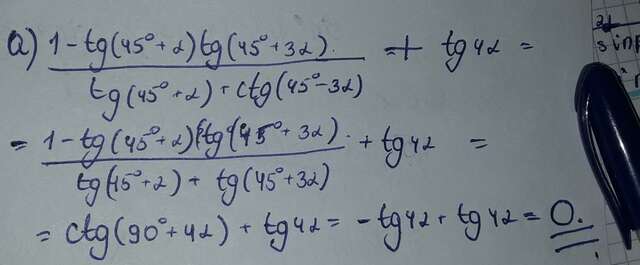 a) 1-tg(45°+α)tg(45°+3α) + tg4α =
tg(45°+α)+ctg(45°-3α)
= 1-tg(45°+α)(tg(45°+3α) + tg4α =
tg(45°+α)+tg(45°+3α)
= ctg(90°+4α)+tg4α = -tg4α+tg4α = 0.